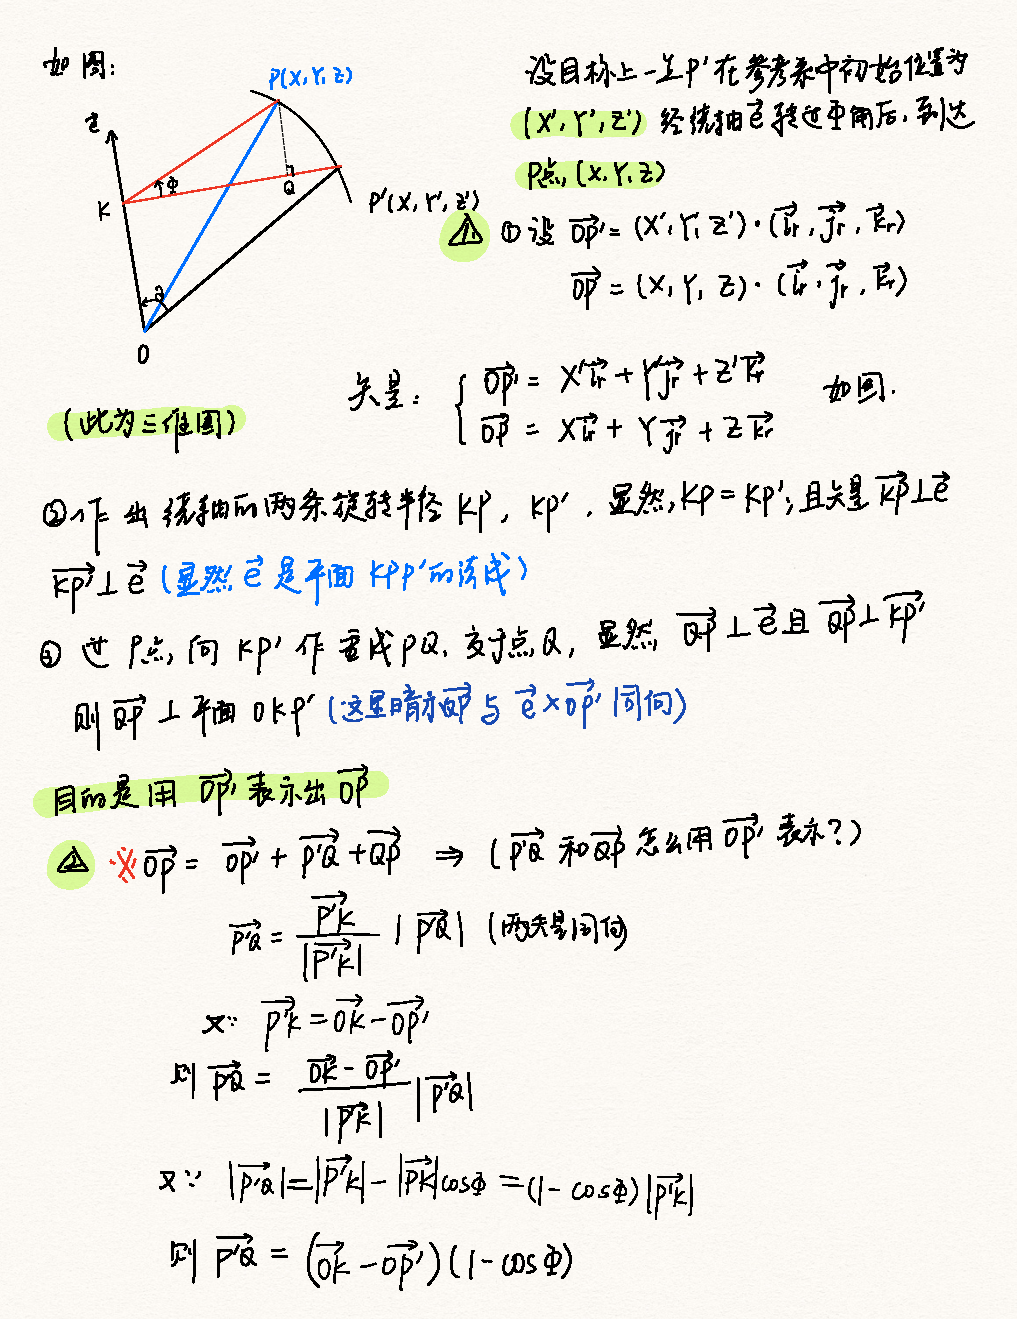 如图:
P(X,Y,Z)
设目标上一点P'在参考系中初始位置为
(X',Y',Z') 经绕轴e⃗转过Φ角后,到达
P点,(X,Y,Z)
K
Φ
Q
P'(X',Y',Z')
O
① 设 OP'⃗ = (X',Y',Z')·(i⃗r, j⃗r, k⃗r)
OP⃗ = (X,Y,Z)·(i⃗r, j⃗r, k⃗r)
矢量: { OP'⃗ = X'i⃗r + Y'j⃗r + Z'k⃗r 如图.
OP⃗ = Xi⃗r + Yj⃗r + Zk⃗r
(此为三维图)
②作出绕轴的两条旋转半径 KP, KP'. 显然,KP=KP',且矢量 KP⃗⊥e⃗
KP'⃗⊥e⃗ (显然e⃗是平面KPP'的法线)
③ 过P点,向KP'作垂线PQ,交于点Q, 显然, QP⃗⊥e⃗且QP⃗⊥KP'⃗
则QP⃗⊥平面OKP' (这里暗示QP⃗与e⃗×OP'⃗同向)
目的是用OP'⃗表示出OP⃗
② ※OP⃗ = OP'⃗ + P'Q⃗ + QP⃗ ⇒ (P'Q⃗和QP⃗怎么用OP'⃗表示?)
P'Q⃗ = P'K⃗/|P'K⃗| |P'Q⃗| (两矢量同向)
又∵ P'K⃗ = OK⃗ - OP'⃗
则 P'Q⃗ = (OK⃗ - OP'⃗)/|P'K⃗| |P'Q⃗|
又∵ |P'Q⃗| = |P'K⃗| - |PK⃗|cosΦ = (1-cosΦ)|P'K⃗|
则 P'Q⃗ = (OK⃗ - OP'⃗)(1-cosΦ)